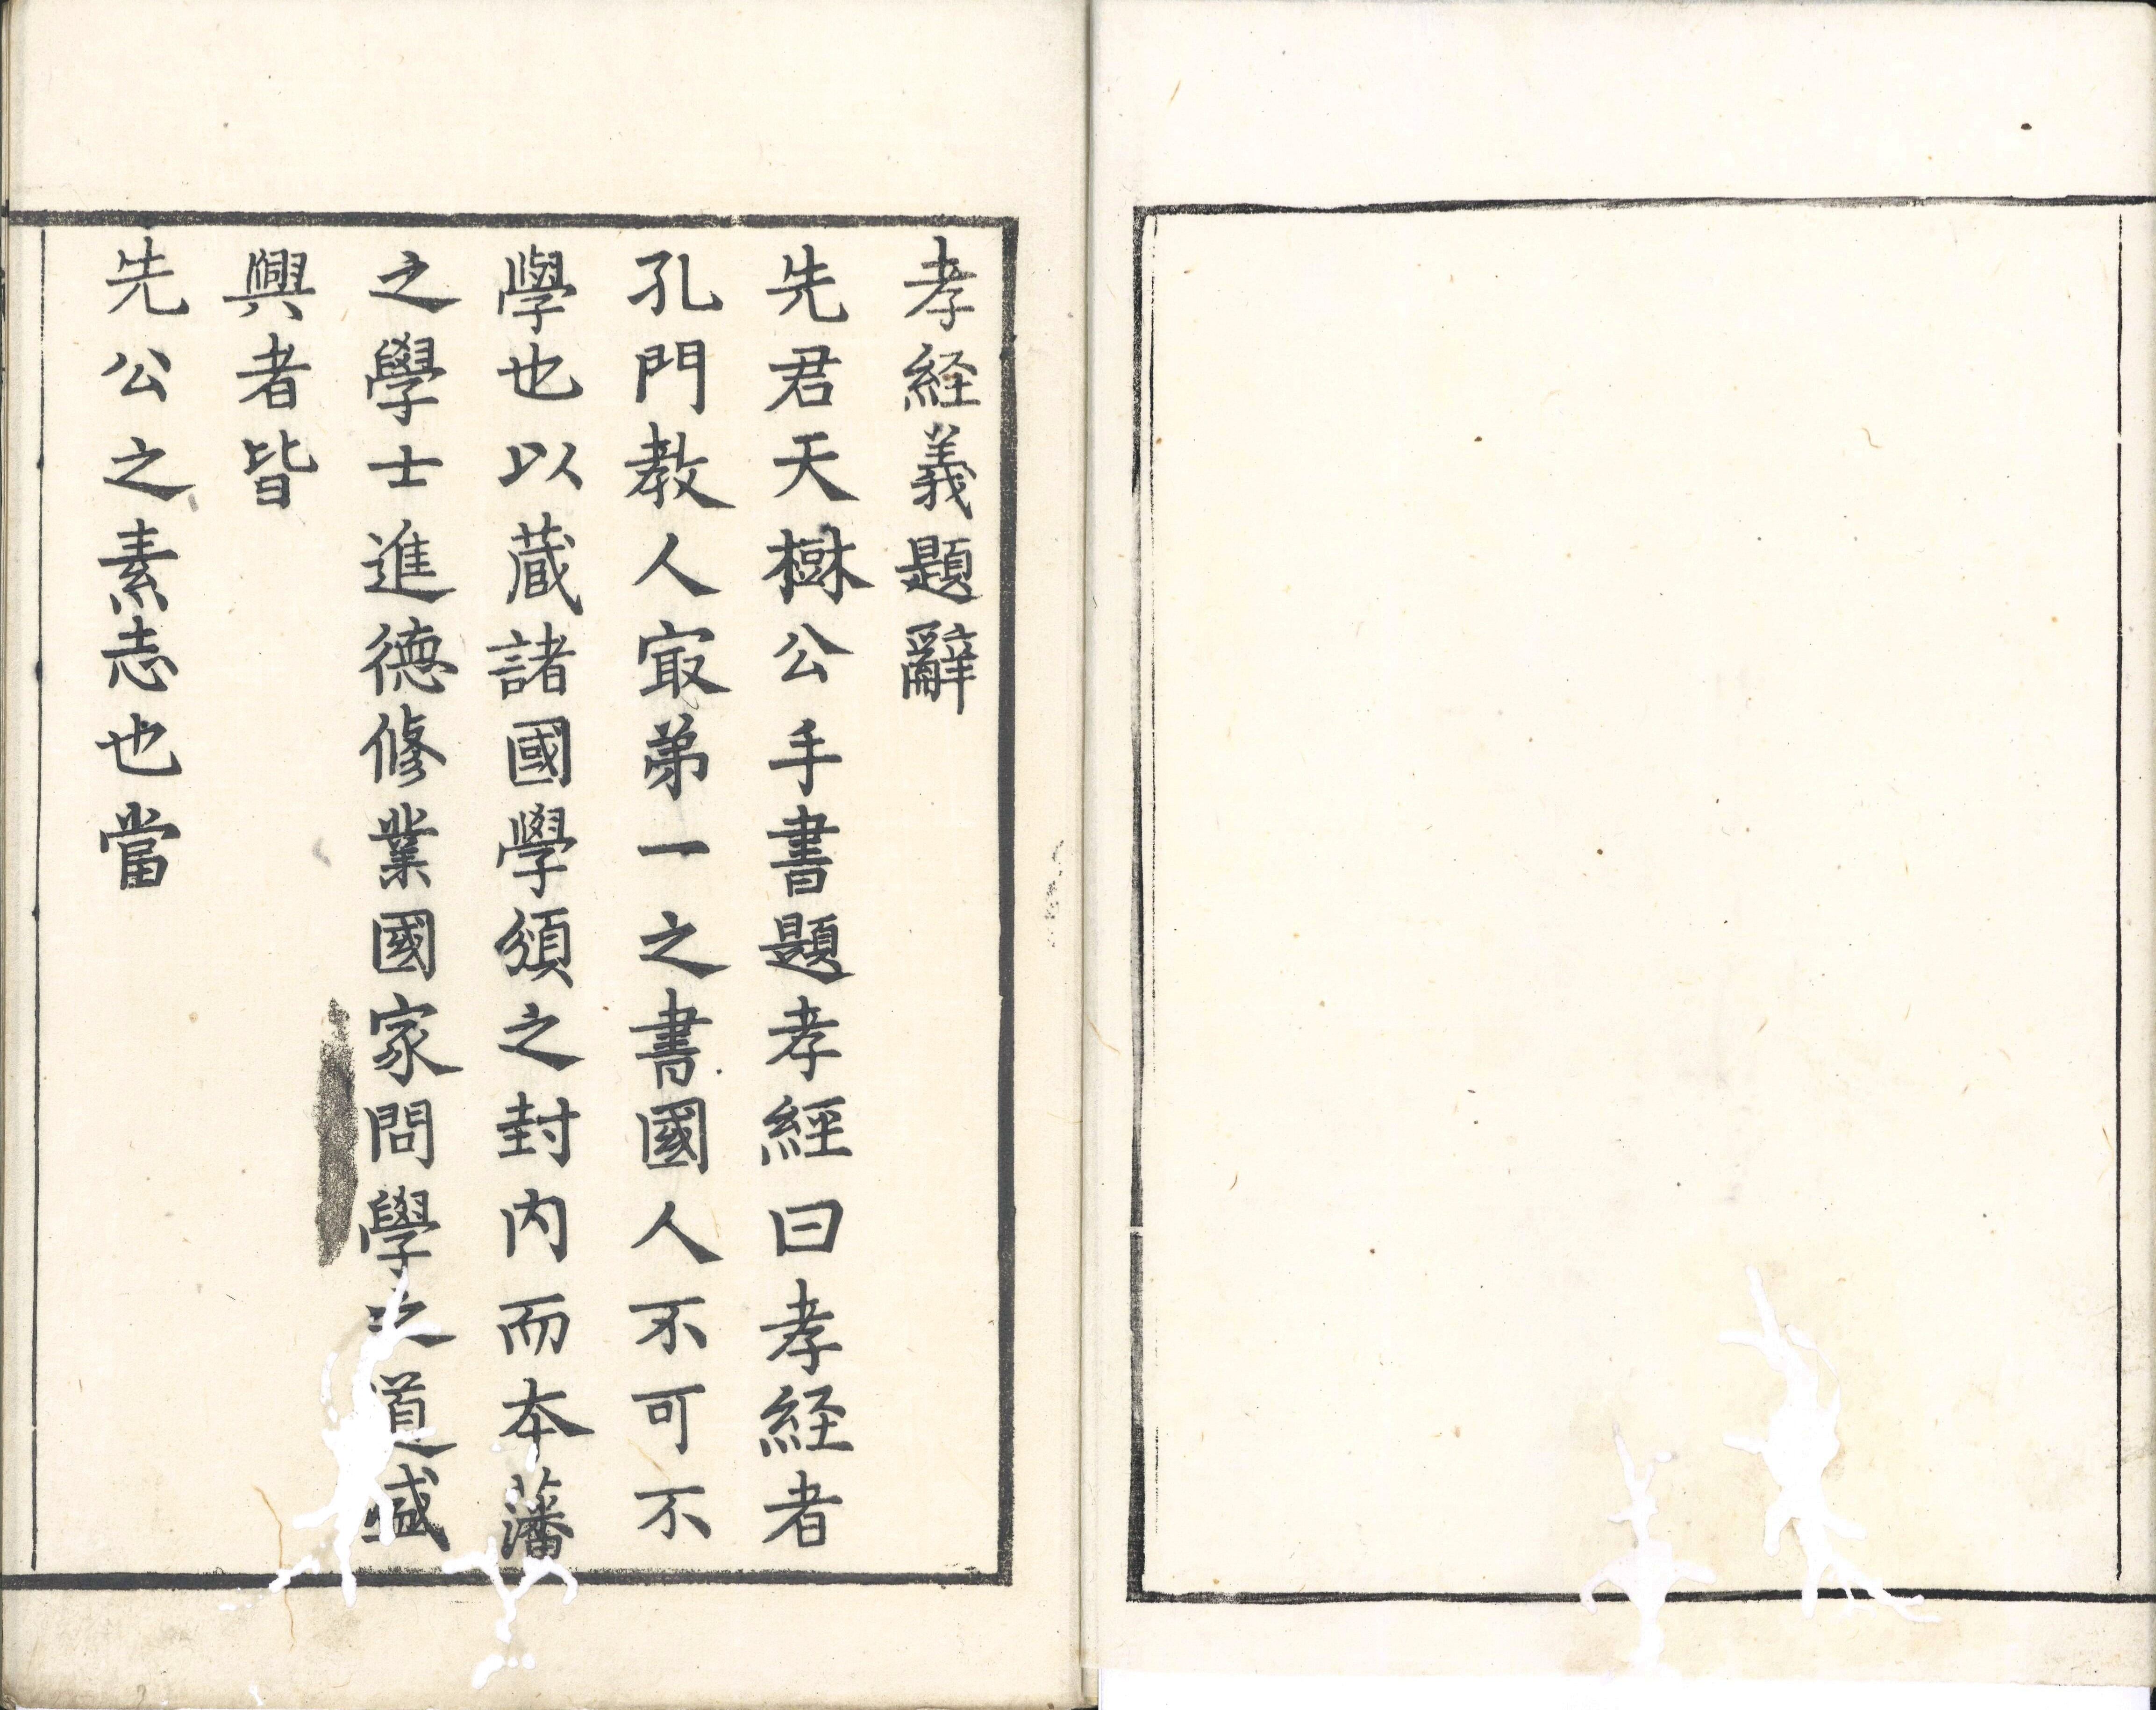 孝経義題辭
先君天樹公手書題孝經曰孝経者
孔門教人冣弟一之書國人不可不
學也以蔵諸國學頒之封内而本藩
之學士進德修業國家問學之道盛
興者皆
先公之素志也當